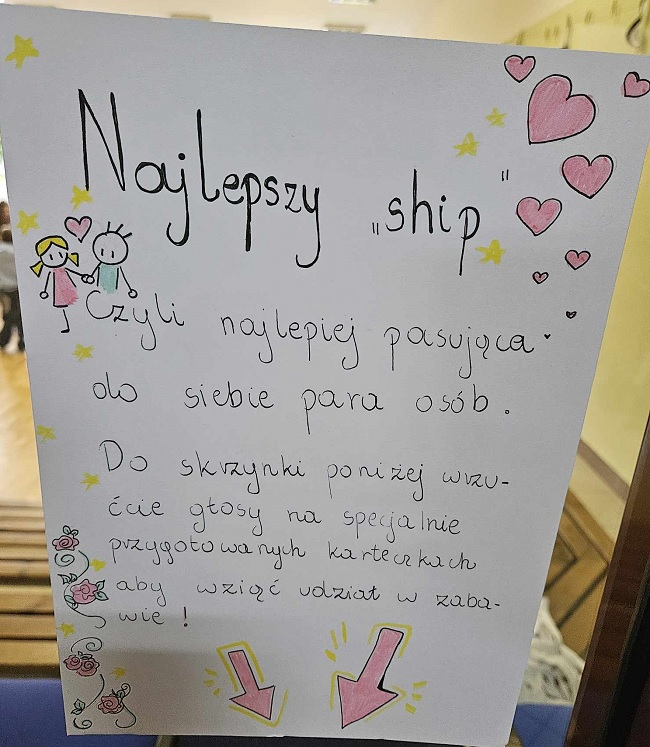 Najlepszy „ship"
Czyli najlepiej pasująca
do siebie para osób.
Do skrzynki poniżej wrzu-
ćcie głosy na specjalnie
przygotowanych karteczkach
aby wziąć udział w zaba-
wie!